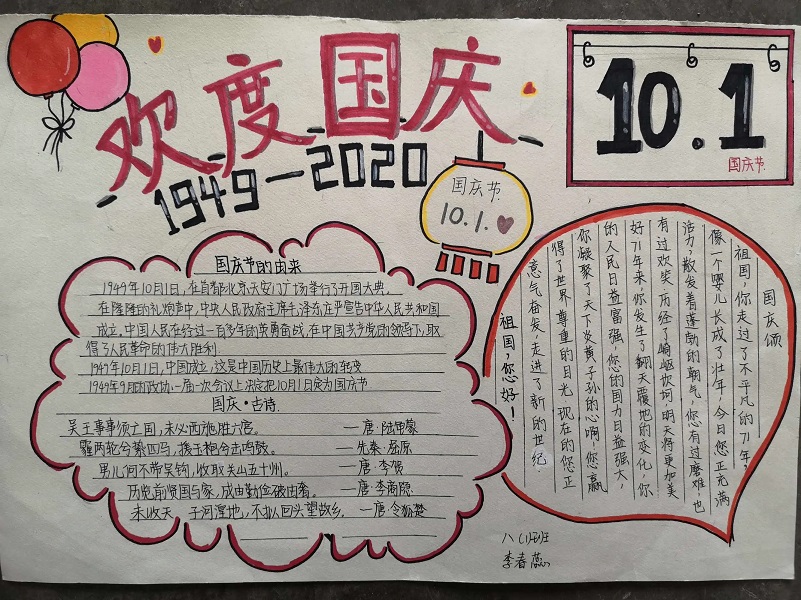 欢度国庆
1949-2020
10.1
国庆节
国庆节
10.1.
国庆节的由来
1949年10月1日,在首都北京天安门广场举行了开国大典,
在隆隆的礼炮声中,中央人民政府主席毛泽东庄严宣告中华人民共和国
成立,中国人民在经过一百多年的英勇奋战,在中国共产党的领导下,取
得了人民革命的伟大胜利.
1949年10月1日,中国成立,这是中国历史上最伟大的转变
1949年9月的政协一届一次会议上决定把10月1日定为国庆节
国庆·古诗.
吴王事事须亡国,未必西施胜六宫。 —唐·陆龟蒙
霾两轮兮絷四马,援玉枹兮击鸣鼓。 —先秦·屈原
男儿何不带吴钩,收取关山五十州。 —唐·李贺
历览前贤国与家,成由勤俭破由奢。 —唐·李商隐
未收天子河湟地,不拟回头望故乡。 —唐·令狐楚
国庆颂
祖国,你走过了不平凡的71年,
像一个婴儿长成了壮年,今日您正充满
活力,散发着蓬勃的朝气,您有过磨难,也
有过欢笑,历经了崎岖坎坷,明天将更加美
好71年来,你发生了翻天覆地的变化,你
的人民日益富强,您的国力日益强大,
你凝聚了天下炎黄子孙的心啊,您赢
得了世界尊重的目光.现在的您正
意气奋发,走进了新的世纪
祖国,您好!
八(1)班
李春蕊